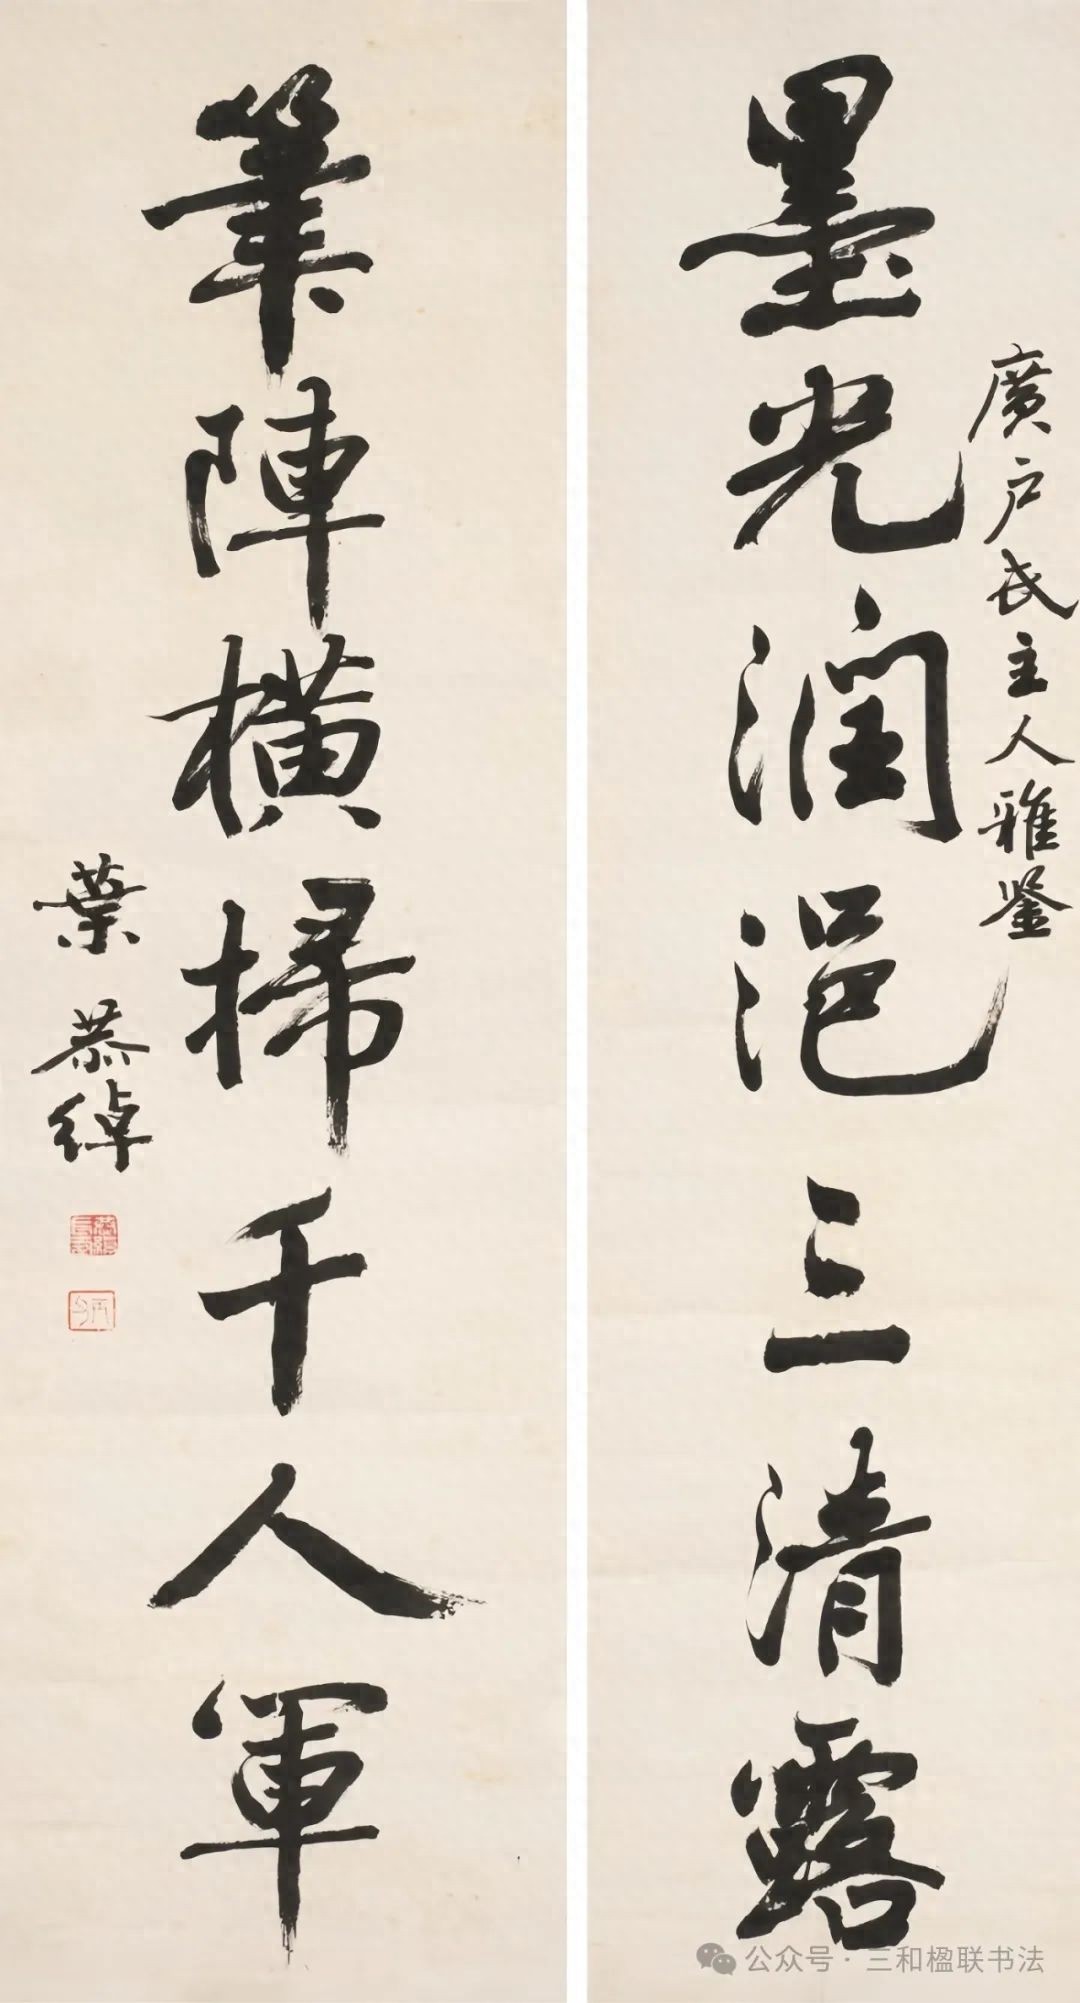 廣户氏主人雅鑒
墨光潤浥三清露
筆陣橫掃千人軍
葉恭綽
公众号 · 三和楹联书法